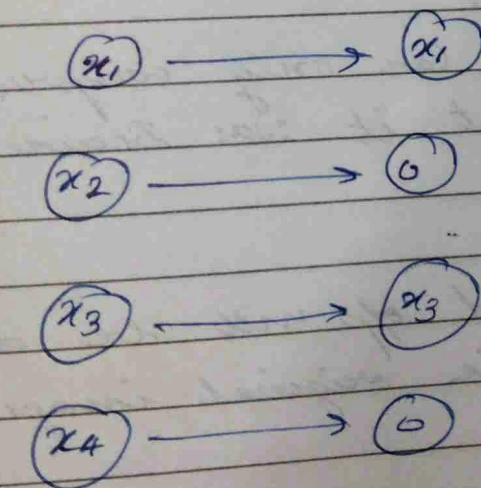 x1 → x1
x2 → 0
x3 → x3
x4 → 0